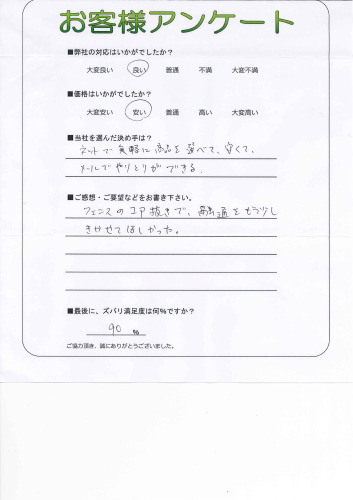 お客様アンケート
■弊社の対応はいかがでしたか?
大変良い 良い 普通 不満 大変不満
■価格はいかがでしたか?
大変安い 安い 普通 高い 大変高い
■当社を選んだ決め手は?
ネットで気軽に商品を選べて、安くて、
メールでやりとりができる.
■ご感想・ご要望などをお書き下さい。
フェンスのコア抜きで、融通をもう少し
きかせてほしかった。
■最後に、ズバリ満足度は何%ですか?
90 %
ご協力頂き、誠にありがとうございました。